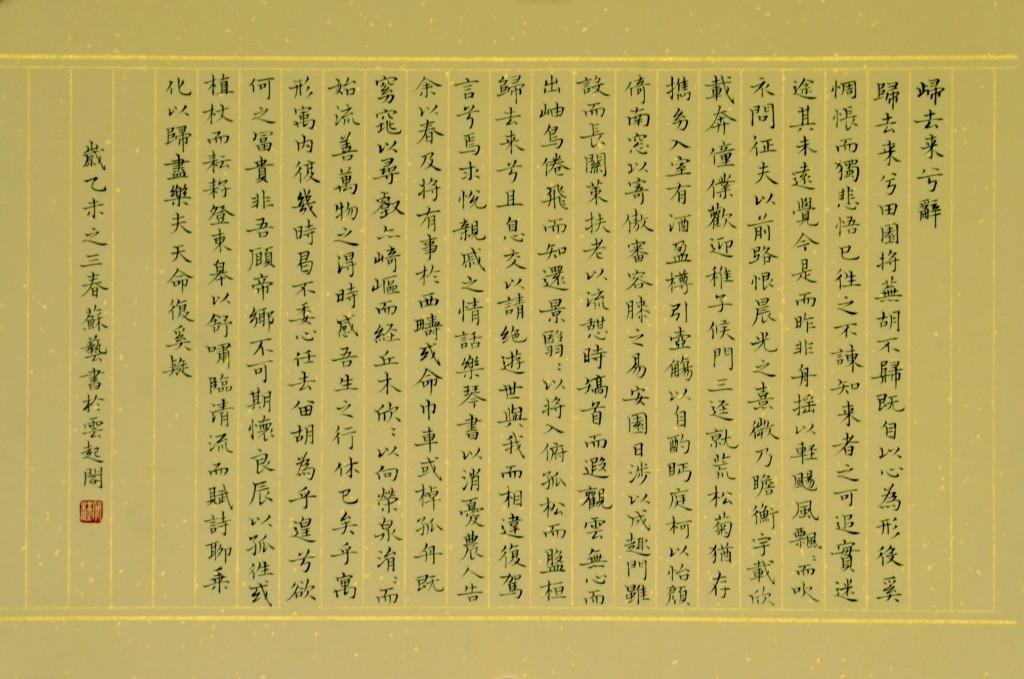 歸去来兮辭
歸去来兮田園将蕪胡不歸既自以心為形役奚
惆悵而獨悲悟已往之不諫知来者之可追實迷
途其未遠覺今是而昨非舟摇以軽颺風飄〻而吹
衣問征夫以前路恨晨光之熹微乃瞻衡宇載欣
載奔僮僕歡迎稚子候門三逕就荒松菊猶存
攜幼入室有酒盈樽引壺觴以自酌眄庭柯以怡顏
倚南窓以寄傲審容膝之易安園日涉以成趣門雖
設而長關策扶老以流憩時矯首而遐觀雲無心而
出岫鳥倦飛而知還景翳〻以将入俯孤松而盤桓
歸去来兮且息交以請絕遊世與我而相違復駕
言兮焉求悅親戚之情話樂琴書以消憂農人告
余以春及将有事於西疇或命巾車或棹孤舟既
窈窕以尋壑亦崎嶇而經丘木欣〻以向榮泉涓〻而
始流善萬物之得時感吾生之行休已矣乎寓
形寓内彼幾時曷不委心任去留胡為乎遑兮欲
何之富貴非吾願帝鄉不可期懷良辰以孤往或
植杖而耘耔登東皋以舒嘯臨清流而賦詩聊乘
化以歸盡樂夫天命復奚疑
歲乙未之三春蘇藝書於雲起閣